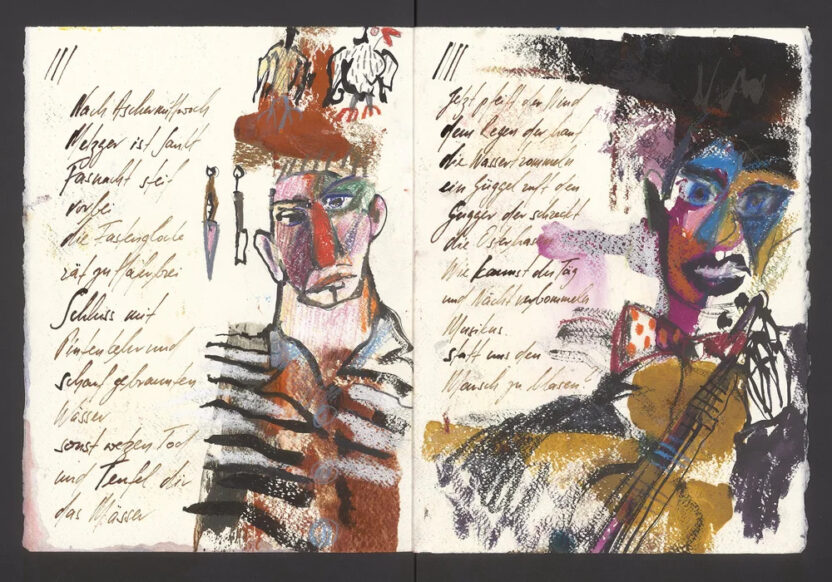 III
Nach Aschermittwoch
Metzger ist Sankt
Fasnacht steif
vorbei
die Fastenglocke
rät zu Haferbrei
Schluss mit
Pintenkehr und
scharf gebrannten
Wässer
sonst wezen Tod
und Teufel dir
das Mässer
IIII
Jetzt pfeift der Wind
dem Regen der
die Wassertrommeln
ein Güggel ruft den
Gugger der schreckt
die Osterhasen
Wie kannst du Tag
und Nacht verbommeln
Musicus
statt uns den
Marsch zu blasen?